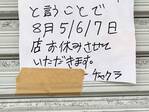 と言うことで
8月5/6/7日
店お休みさせて
いただきます。